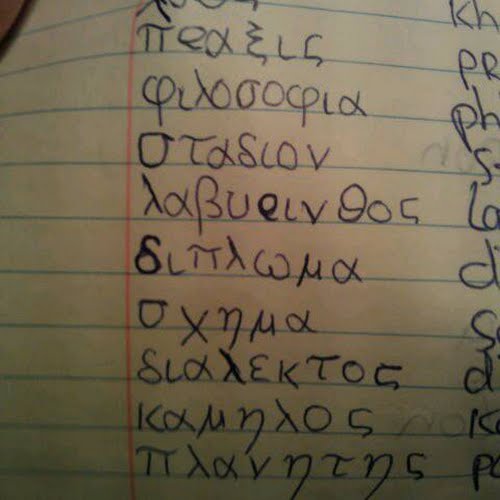 πραξις pr
φιλοσοφια ph
σταδιον s
λαβυρινθος la
διπλωμα d
σχημα s
διαλεκτος d
καμηλος ka
πλανητης